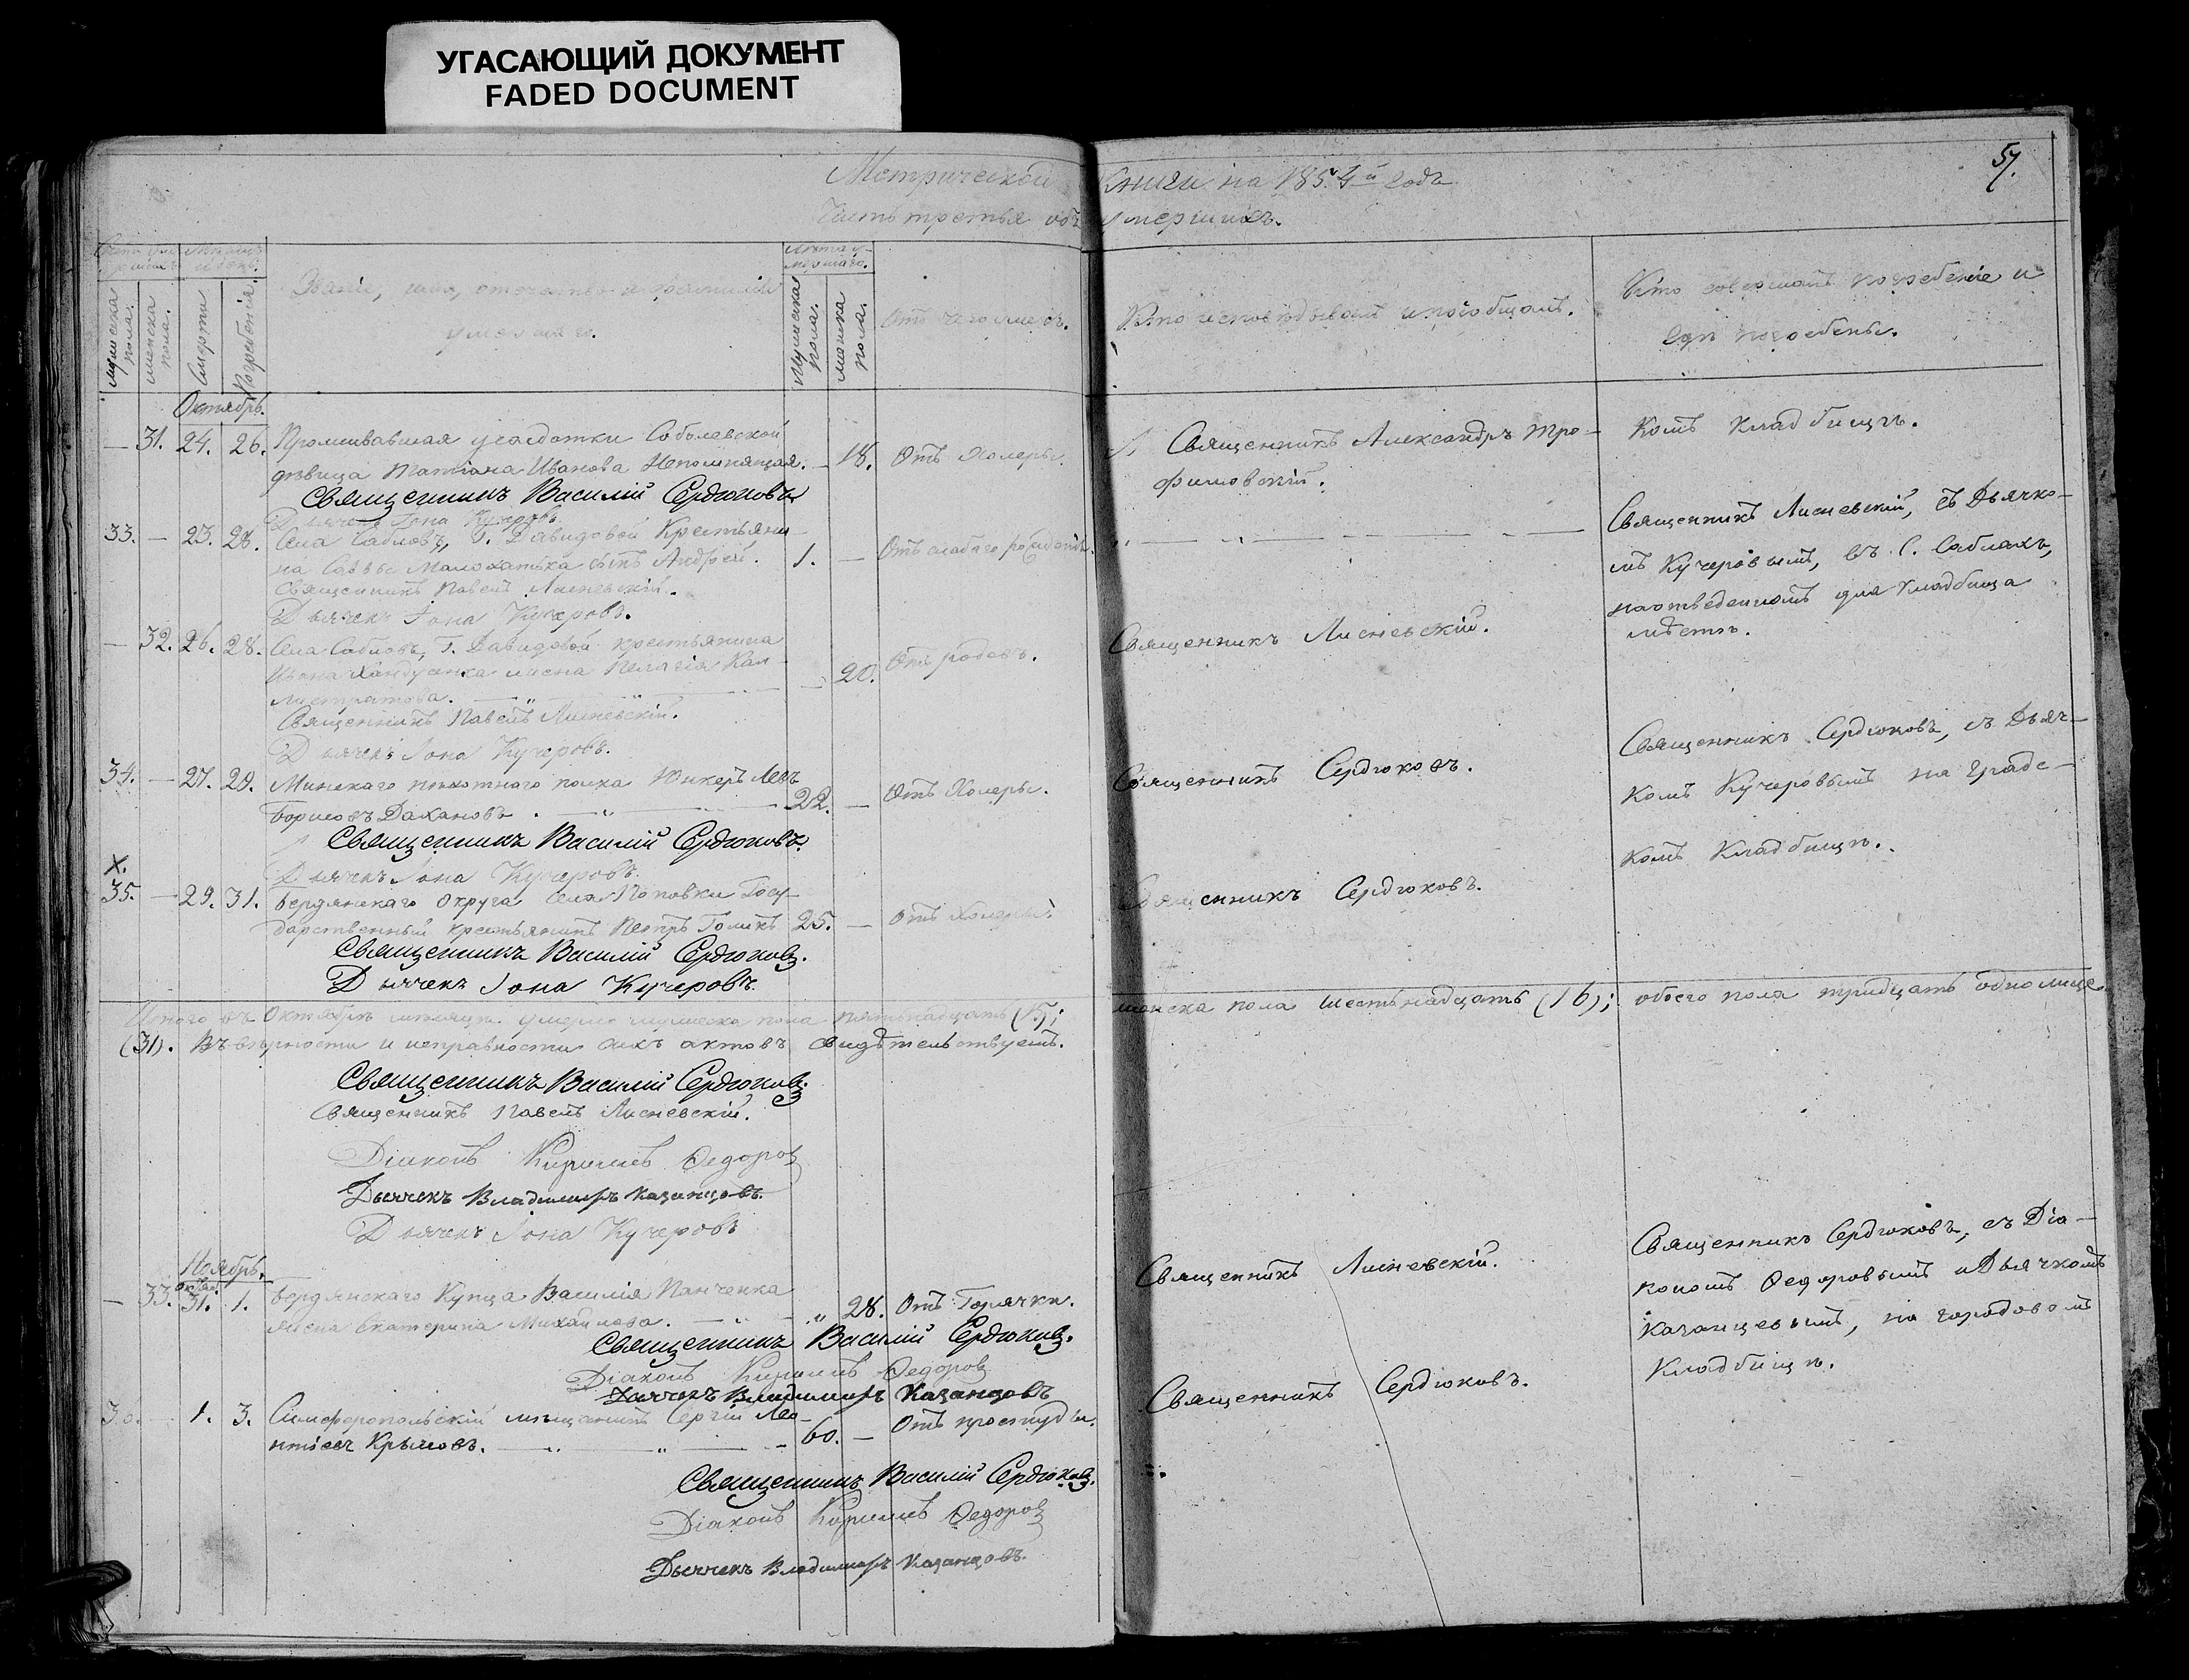 УГАСАЮЩИЙ ДОКУМЕНТ
FADED DOCUMENT
57.
Метрической Книги на 1854й годъ
Часть третья объ умершихъ.
Мужеска пола.
женска пола.
Смерти
Погребенія.
Званіе, имя, отечество и фамилія
умершаго.
Лѣта умершаго.
Мужеска пола.
женска пола.
Отъ чего умеръ.
Кто исповѣдывалъ и пріобщалъ.
Кто совершалъ погребеніе и
гдѣ погребены.
Октябрь.
— 31. 24. 26. Проживавшая у солдатки Соболевской
дѣвица Татіана Иванова Непомнящая. — 18. Отъ Холеры.
Священникъ Александръ Тро-
фимовскій.
комъ кладбищѣ.
Священникъ Василій Сердюковъ
Дьячекъ Іона Кучеровъ
33. — 23. 28. Села Сабловъ, Г. Давидовой Крестьяни-
на Саввы Малохатька сынъ Андрей. 1. — Отъ слабаго рожденія.
Священникъ Павелъ Лисневскій.
Дьячекъ Іона Кучеровъ.
Священникъ Лисневскій, съ Дьячко-
мъ Кучеровымъ, въ С. Саблахъ,
на отведенномъ для кладбища
мѣстѣ.
— 32. 26. 28. Села Сабловъ, Г. Давидовой крестьянина
Ивана жена Пелагія Кал-
листратова. — 20. Отъ родовъ.
Священникъ Лисневскій.
Священникъ Павелъ Лисневскій.
Дьячекъ Іона Кучеровъ.
34. — 27. 29. Минскаго пѣхотнаго полка Юнкеръ Левъ
Борисовъ Дахановъ. 22. — Отъ Холеры.
Священникъ Сердюковъ.
Священникъ Сердюковъ, съ Дьяч-
комъ Кучеровымъ на градс-
комъ Кладбищѣ.
Священникъ Василій Сердюковъ.
Дьячекъ Іона Кучеровъ.
х.
35. — 29. 31. Бердянскаго округа села Поповки Госу-
дарственный крестьянинъ Петръ Голикъ 25. — Отъ Холеры.
Священникъ Сердюковъ.
Священникъ Василій Сердюковъ.
Дьячекъ Іона Кучеровъ.
Итого въ Октябрѣ мѣсяцѣ умерло мужеска пола пятьнадцать (15); женска пола шестьнадцать (16); обоего пола тридцать одно лице
(31). Въ вѣрности и исправности сихъ актовъ свидѣтельствуемъ.
Священникъ Василій Сердюковъ.
Священникъ Павелъ Лисневскій.
Діаконъ Кириллъ Федоровъ
Дьячекъ Владимиръ Казанцовъ.
Дьячекъ Іона Кучеровъ
Ноябрь.
— 33. Октяб. 31. 1. Бердянскаго Купца Василія Панченка
жена Екатерина Михайлова. — „ 28. Отъ Горячки.
Священникъ Лисневскій.
Священникъ Сердюковъ, съ Діа-
кономъ Федоровымъ и Дьячкомъ
Казанцевымъ, на городовомъ
Кладбищѣ.
Священникъ Василій Сердюковъ.
Діаконъ Кириллъ Федоровъ
Дьячекъ Владимиръ Казанцовъ
36. — 1. 3. Симферопольскій мѣщанинъ Сергій Лео-
нтіевъ Крымовъ. 60. — Отъ простуды.
Священникъ Сердюковъ.
Священникъ Василій Сердюковъ.
Діаконъ Кириллъ Федоровъ
Дьячекъ Владимиръ Казанцовъ.